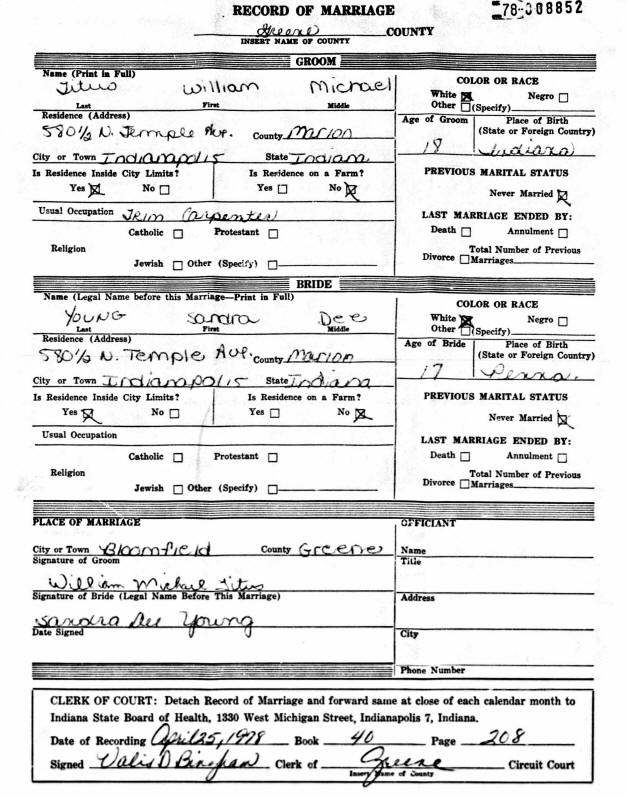 RECORD OF MARRIAGE
78-008852
Greene COUNTY
INSERT NAME OF COUNTY
GROOM
Name (Print in Full)
Titus William Michael
Last First Middle
COLOR OR RACE
White Negro
Other (Specify)
Residence (Address)
580½ N. Temple Ave. County Marion
Age of Groom Place of Birth
(State or Foreign Country)
18 Indiana
City or Town Indianapolis State Indiana
Is Residence Inside City Limits? Is Residence on a Farm?
Yes No Yes No
PREVIOUS MARITAL STATUS
Never Married
Usual Occupation Trim Carpenter
LAST MARRIAGE ENDED BY:
Catholic Protestant
Death Annulment
Religion
Total Number of Previous
Jewish Other (Specify)
Divorce Marriages
BRIDE
Name (Legal Name before this Marriage—Print in Full)
Young Sandra Dee
Last First Middle
COLOR OR RACE
White Negro
Other (Specify)
Residence (Address)
580½ N. Temple Ave. County Marion
Age of Bride Place of Birth
(State or Foreign Country)
17 Penna.
City or Town Indianapolis State Indiana
Is Residence Inside City Limits? Is Residence on a Farm?
Yes No Yes No
PREVIOUS MARITAL STATUS
Never Married
Usual Occupation
LAST MARRIAGE ENDED BY:
Catholic Protestant
Death Annulment
Religion
Total Number of Previous
Jewish Other (Specify)
Divorce Marriages
PLACE OF MARRIAGE
OFFICIANT
City or Town Bloomfield County Greene
Name
Signature of Groom
Title
William Michael Titus
Signature of Bride (Legal Name Before This Marriage)
Address
Sandra Dee Young
Date Signed
City
Phone Number
CLERK OF COURT: Detach Record of Marriage and forward same at close of each calendar month to
Indiana State Board of Health, 1330 West Michigan Street, Indianapolis 7, Indiana.
Date of Recording April 25, 1978 Book 40 Page 208
Signed D Clerk of Greene Circuit Court
Insert Name of County